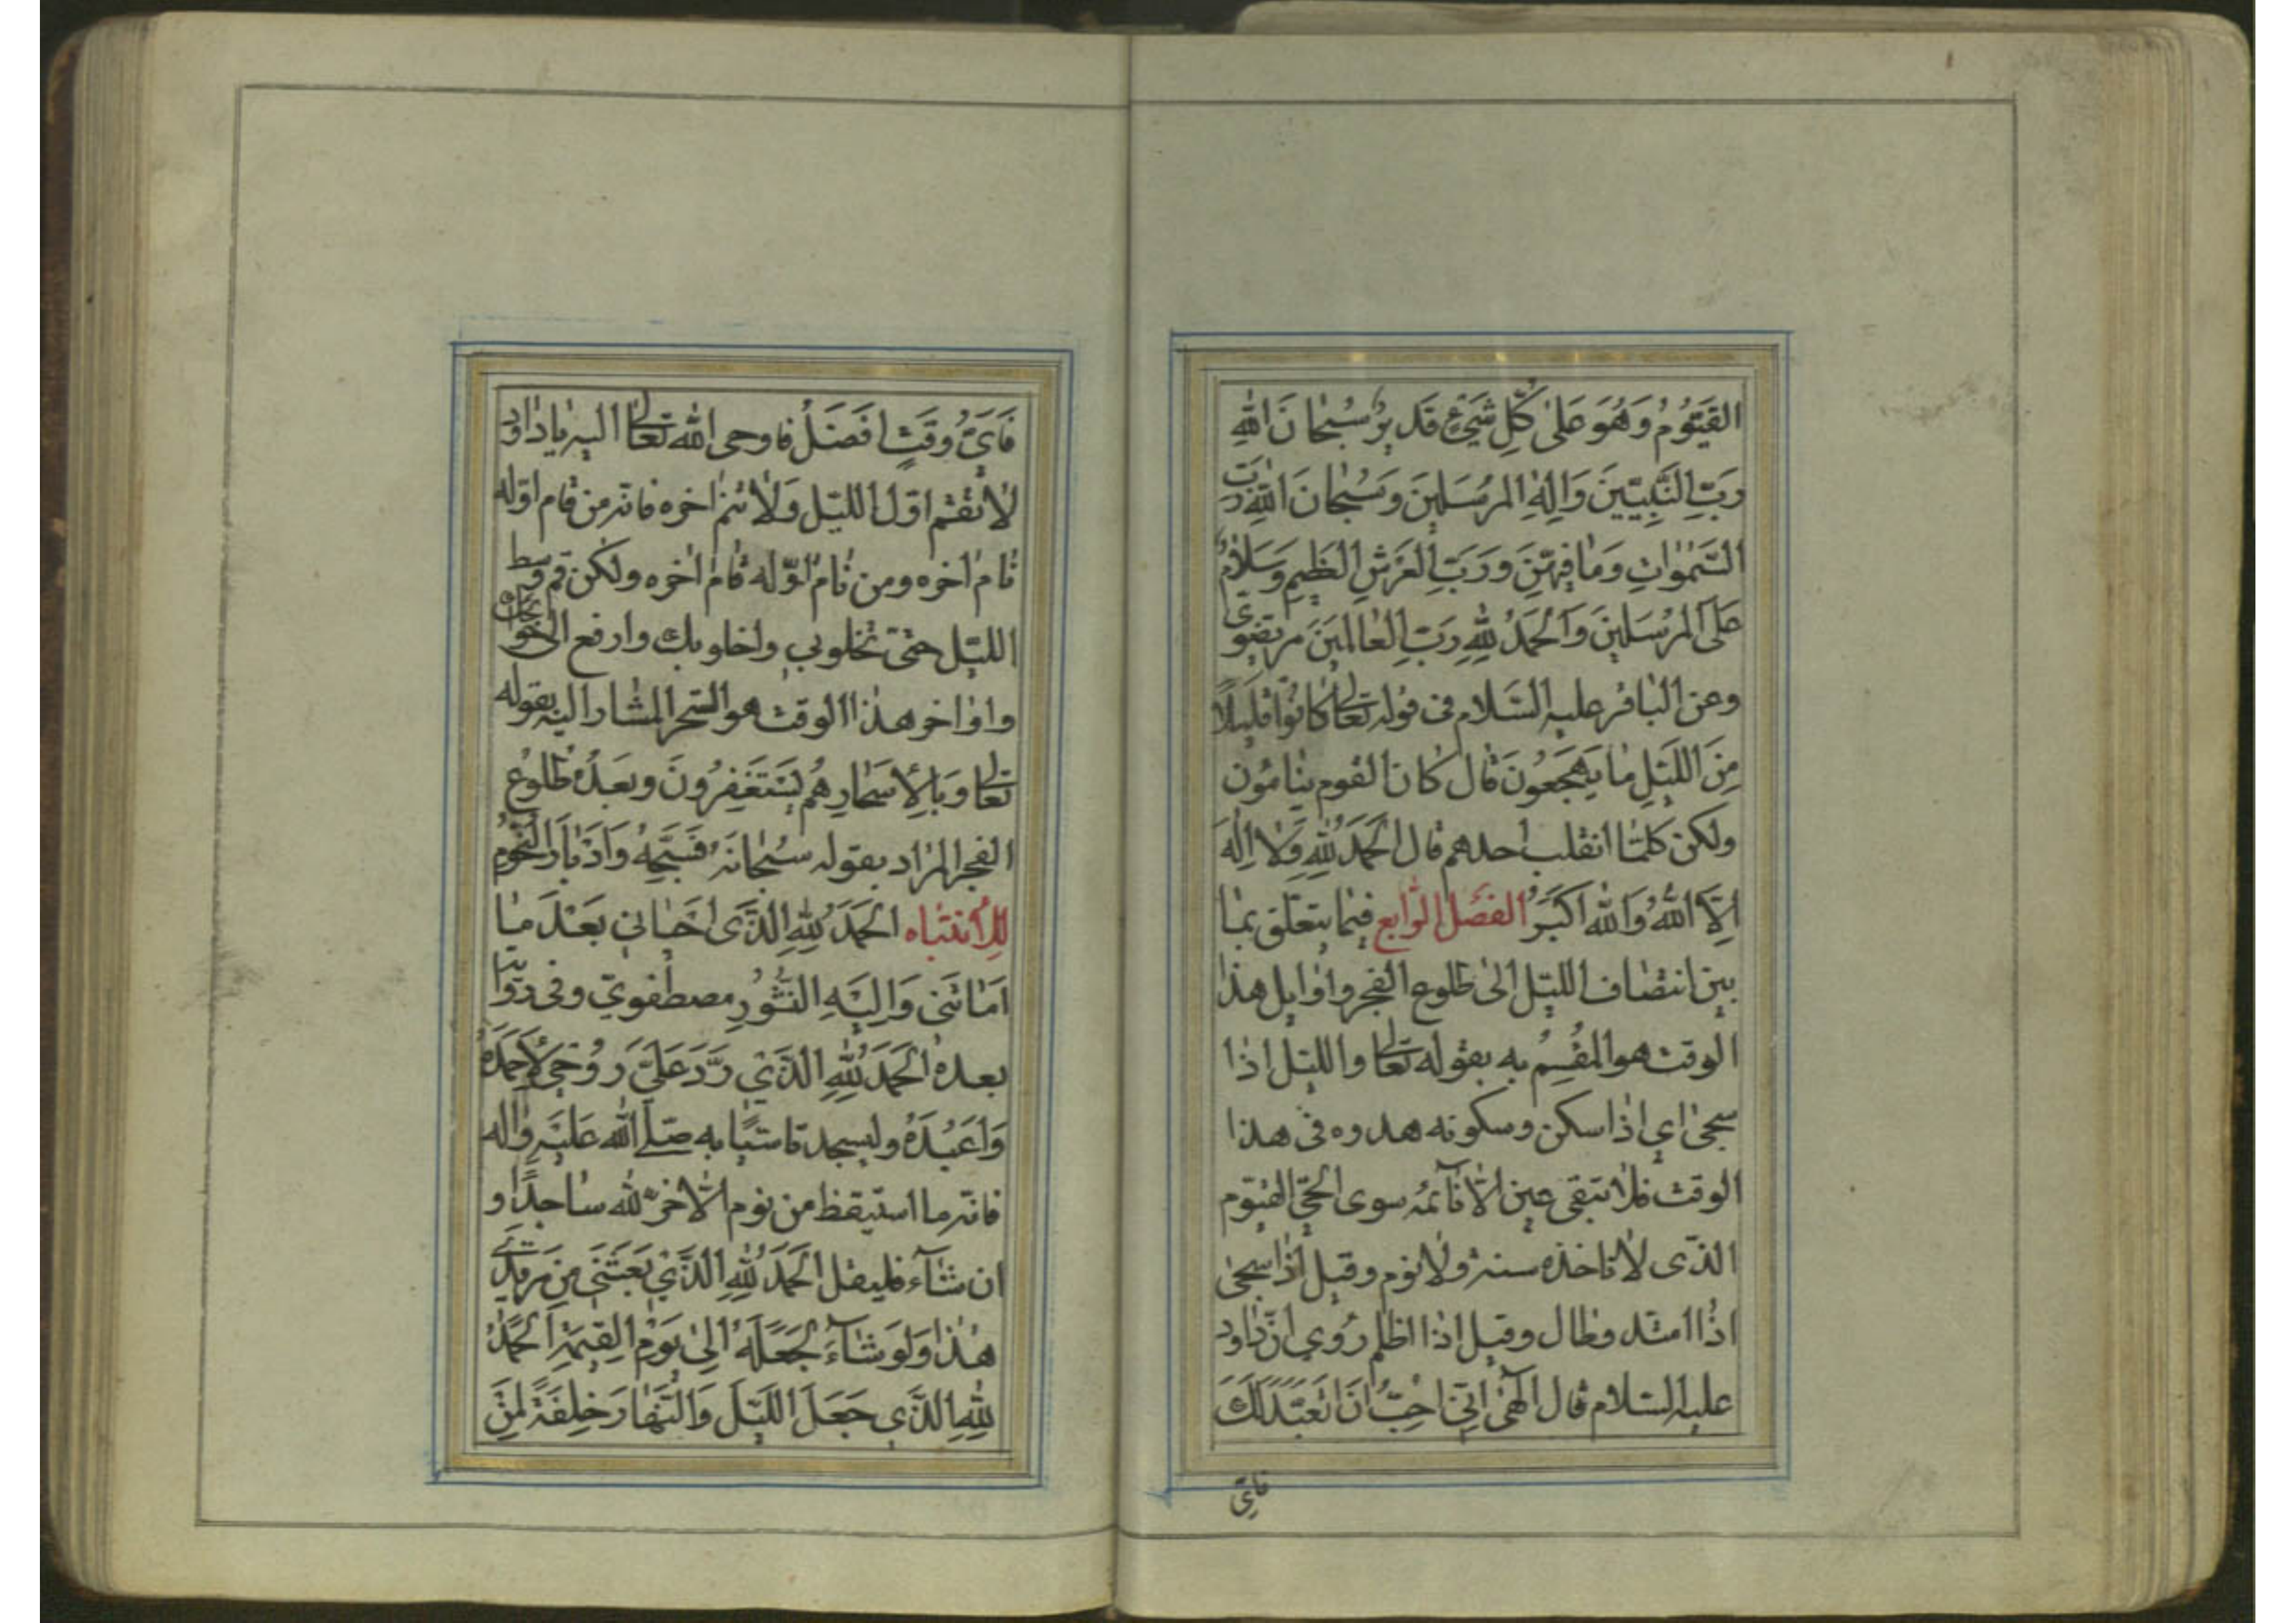 القَيُّومُ وَهُوَ عَلىٰ كُلِّ شَيْءٍ قَديرٌ سُبْحانَ اللهِ
رَبِّ النَّبِيّينَ وَاِلٰهِ المُرسَلينَ وَسُبْحانَ اللهِ رَبِّ
السَّمٰواتِ وَمٰا فيهِنَّ وَرَبِّ العَرْشِ العَظيمِ وَسَلامٌ
عَلَى المُرسَلينَ وَالحَمدُ لِلّٰهِ رَبِّ العٰالَمينَ مرتضوي
وعن الباقر عليه السَّلام في قوله تعالى كٰانُوا قَليلًا
مِنَ اللَّيْلِ مٰا يَهْجَعُونَ قال كان القوم ينامون
ولكن كلّما انقلب احدهم قال الحَمدُ لِلّٰهِ وَلا اِلٰهَ
اِلَّا اللهُ وَاللهُ اَكْبَرُ الفصل الرّابع فيما يتعلّق بما
بين انتصاف الليل الى طلوع الفجر واوايل هذا
الوقت هو المُقسَمُ به بقوله تعالى والليل اذا
سجى اي اذا سكن وسكونه هدوه في هذا
الوقت فلا تبقى عين الّا نآئمه سوى الحيّ القيّوم
الذّى لا تاخذه سنة ولا نوم وقيل اذا سجى
اذا امتد وطال وقيل اذا اظلم روي انّ داود
عليه السلام قال الٰهي اِنّي احِبُّ اَن اَتَعَبَّدَ لَكَ
فايّ
فَايَّ وَقتٍ اَفضَلُ فاوحى الله تعالى اليه يا داود
لا تقم اول الليل ولا تنم اخره فانه من قام اوله
نام اخره ومن نام اوّله قام اخره ولكن قم وسط
الليل حتى تخلو بي واخلو بك وارفع الىّ حوائجك
واواخر هذا الوقت هو السّحر المشار اليه بقوله
تعالى وَبِالاَسْحارِ هُم يَسْتَغْفِرُونَ وبعده طلوع
الفجر المراد بقوله سبحانه فَسَبِّحْهُ وَاِدْبارَ النُّجُومِ
للِانتباه الحَمدُ لِلّٰهِ الذَّى احياني بَعْدَ مٰا
اَمٰاتَنى وَاِلَيْهِ النُّشُورِ مصطفويّ وفي رواية
بعده الحَمدُ لِلّٰهِ الذَّي رَدَّ عَلَيَّ رُوحي لِاَحْمَدَهُ
وَاَعبُدَهُ وليسجد تاسّيًا به صلّى الله عَلَيهِ واله
فانه ما استيقظ من نوم الّا خرّ لله ساجدًا و
ان شآء فليقل الحَمدُ لِلّٰهِ الذَّي بَعَثَني مِن مرقدي
هٰذا وَلَو شآءَ لَجَعَلَهُ اِلىٰ يَوْمِ القِيٰمَةِ اَلحَمدُ
لِلّٰهِ الذَّي جَعَلَ اللَيلَ وَالنَّهارَ خِلفَةً لِمَن